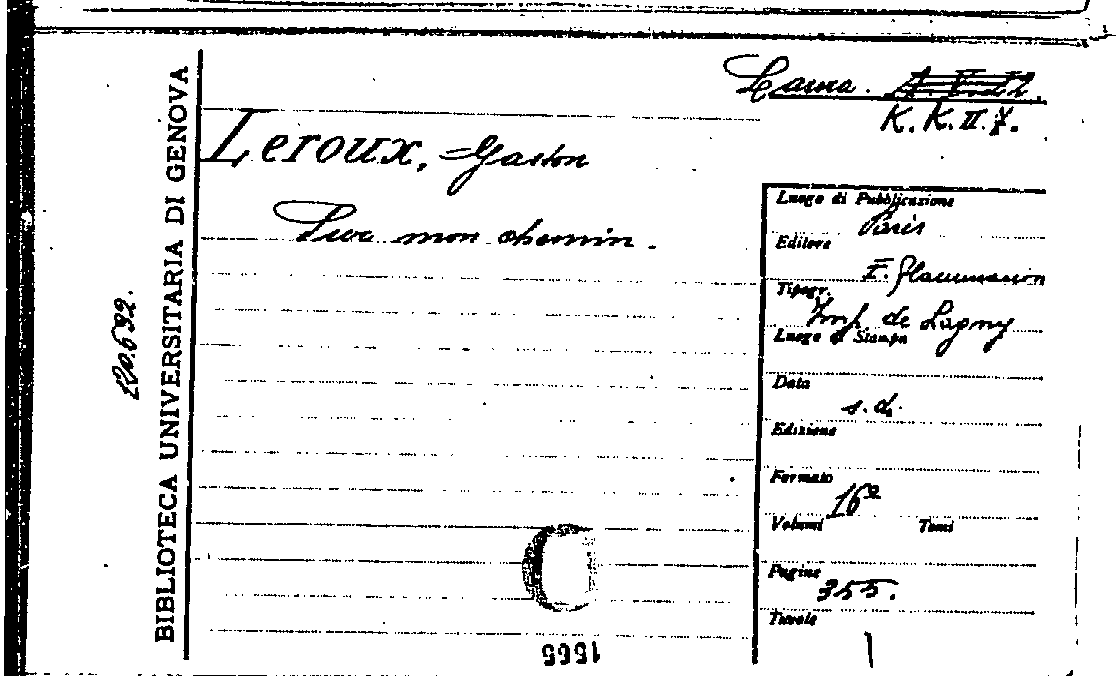 BIBLIOTECA UNIVERSITARIA DI GENOVA
K. K. II. 7.
Leroux, Gaston
Sur mon chemin.
Luogo di Pubblicazione
Paris
Editore
E. Flammarion
Tipogr.
Imp. de Lagny
Luogo di Stampa
Data
s. d.
Edizione
Formato
16º
Volumi Tomi
Pagine
355.
Tavole
1
1565